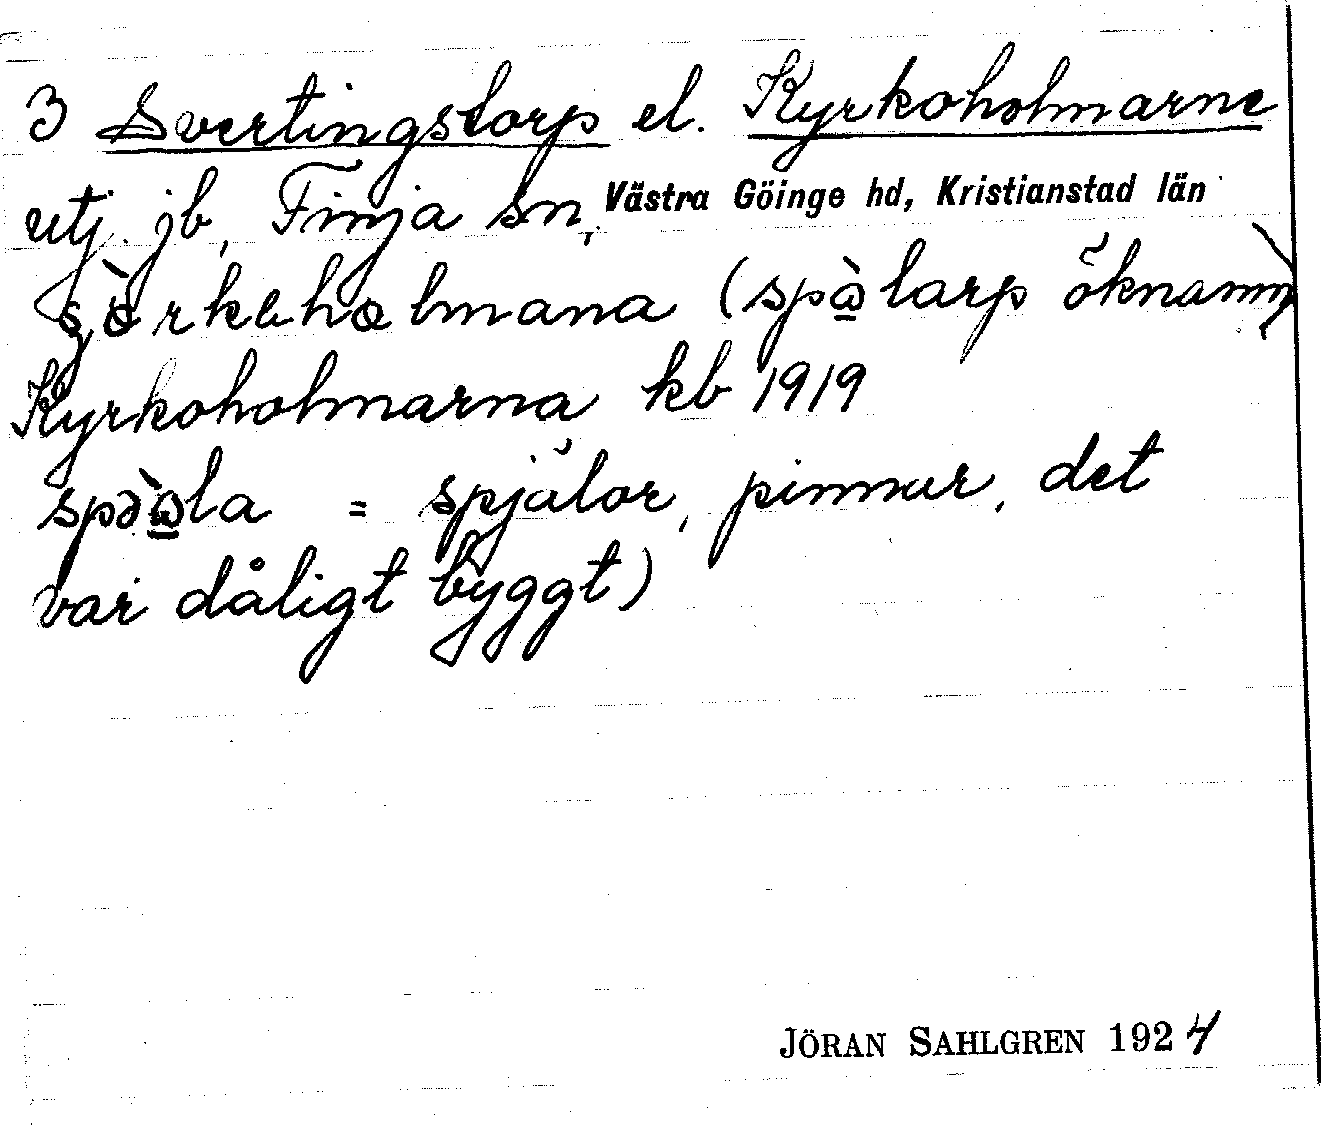 3 Svertingstorp el. Kyrkoholmarne
utj. jb, Finja sn, Västra Göinge hd, Kristianstad län
sjòrkəhɷlmana (spàlarp öknamn)
Kyrkoholmarna kb 1919
spàla = spjälor, pinnar, det
var dåligt byggt)
JÖRAN SAHLGREN 1924